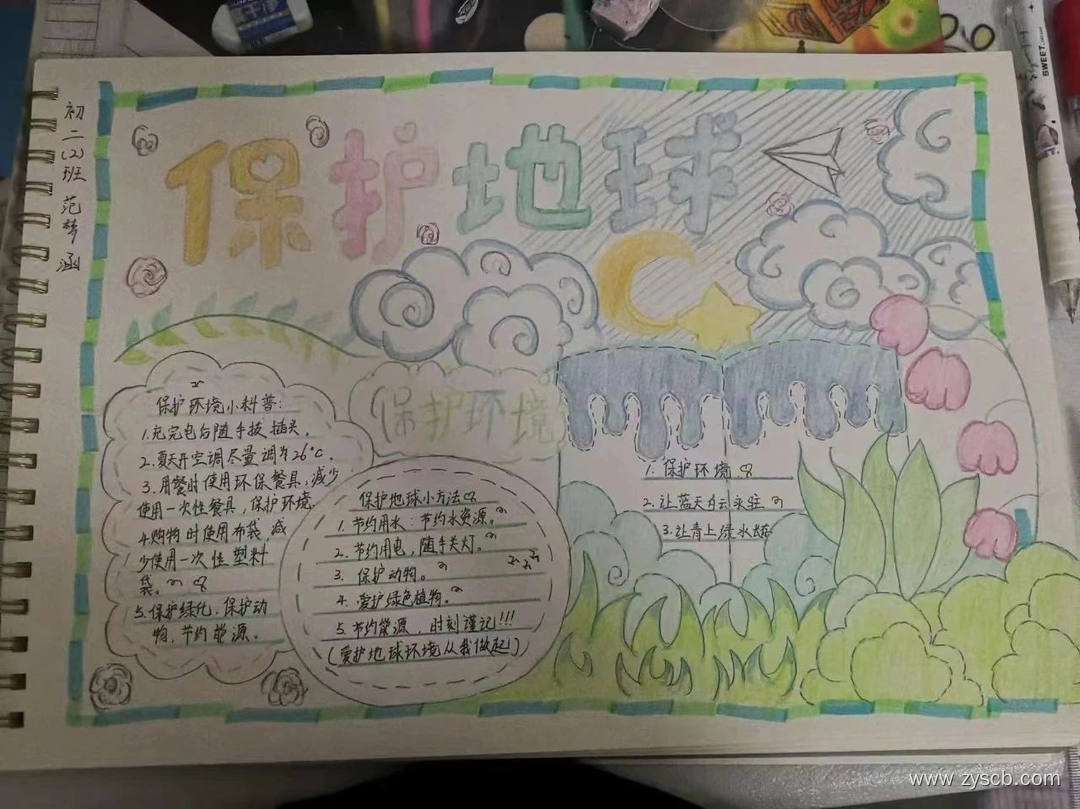 初二(2)班 范梦涵
保护地球
保护环境小科普:
1.充完电后随手拔插头.
2.夏天开空调尽量调为26°C.
3.用餐时使用环保餐具,减少
使用一次性餐具,保护环境.
4.购物时使用布袋 减
少使用一次性塑料
袋。
5.保护绿化,保护动
物,节约能源。
保护环境
保护地球小方法
1.节约用水:节约水资源。
2.节约用电,随手关灯。
3.保护动物。
4.爱护绿色植物。
5.节约能源,时刻谨记!!!
(爱护地球环境从我做起)
1.保护环境
2.让蓝天白云永驻
3.让青上绿水长
SWEET
www.zyscb.com